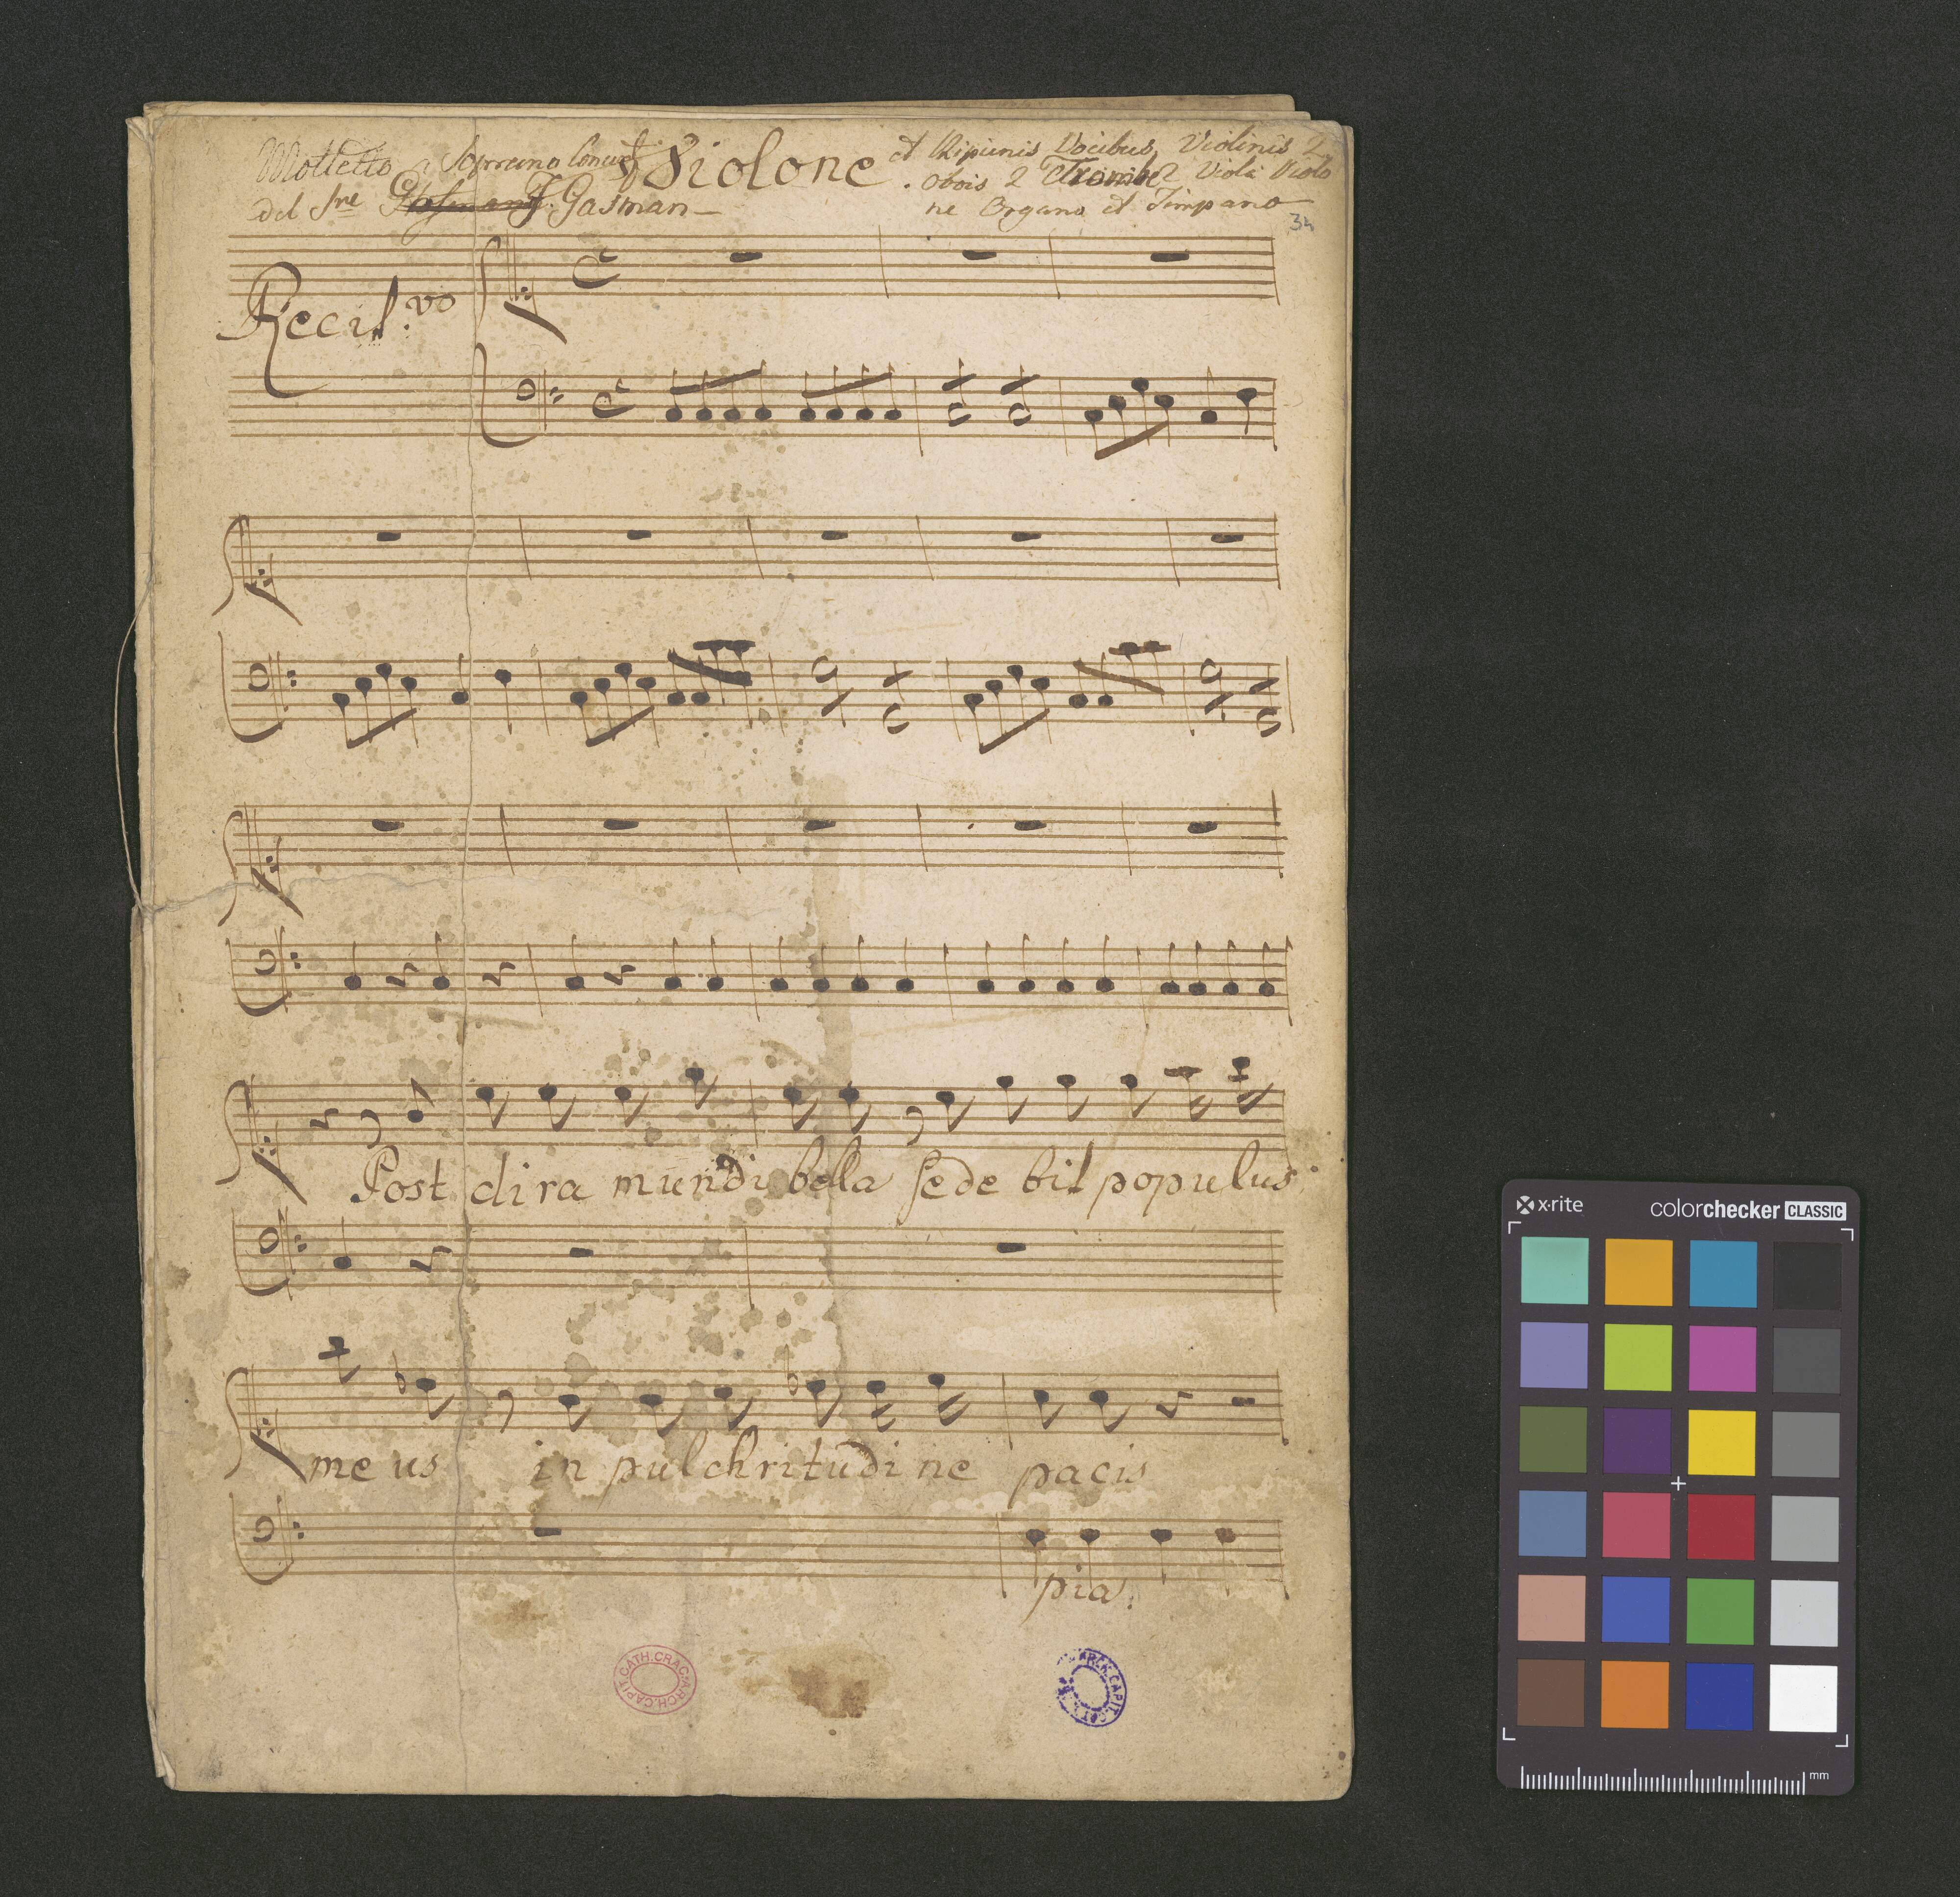 Motteto a Soprano Concert
Violone.
et Ripienis Vocibus, Violinis 2
Obois 2 Trombe 2 Viola Violo
ne Organo et Timpano
del Sre J. Gasman
34
Recit.vo
Post di ra mundi bella sede bit populus
me us in pulchritudi ne pacis
pia:
ARCH.CAPIT.CATH.CRAC.
ARCH.CAPIT.CATH.
x-rite
colorchecker CLASSIC
mm